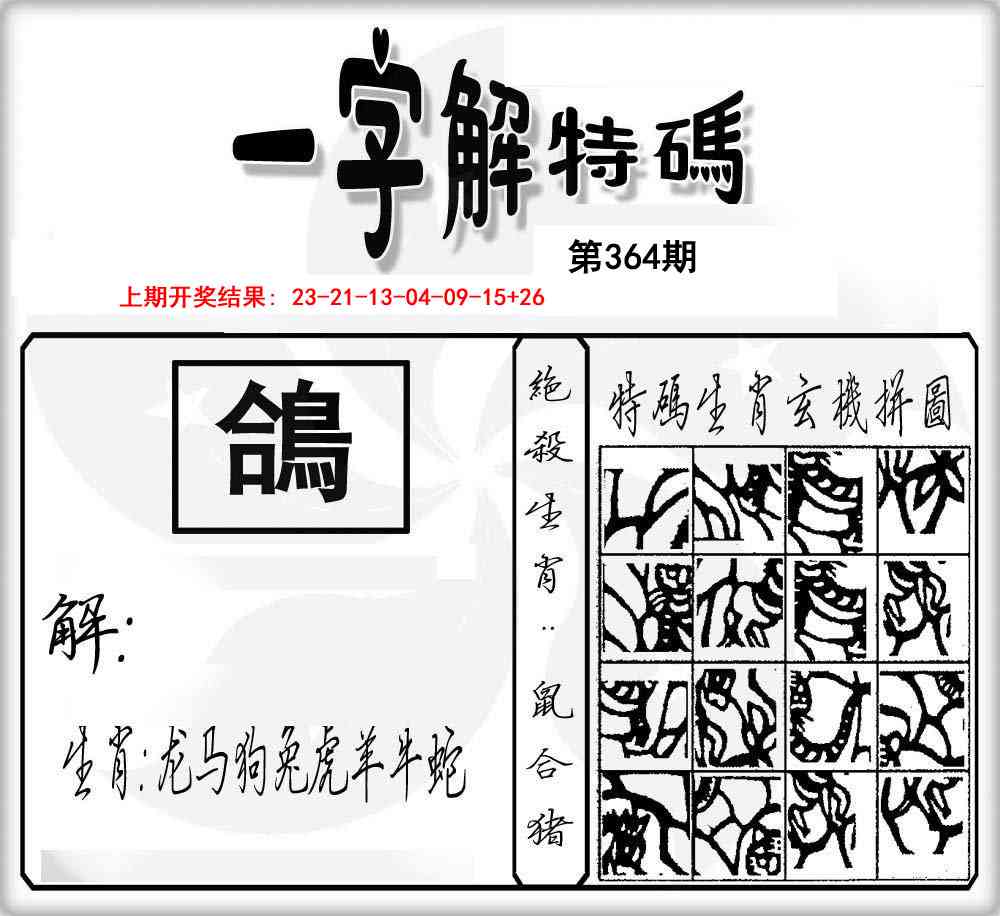 一字解特碼
第364期
上期开奖结果: 23-21-13-04-09-15+26
鴿
解:
生肖:龙马狗兔虎羊牛蛇
絶殺生肖:鼠合猪
特碼生肖玄機拼圖